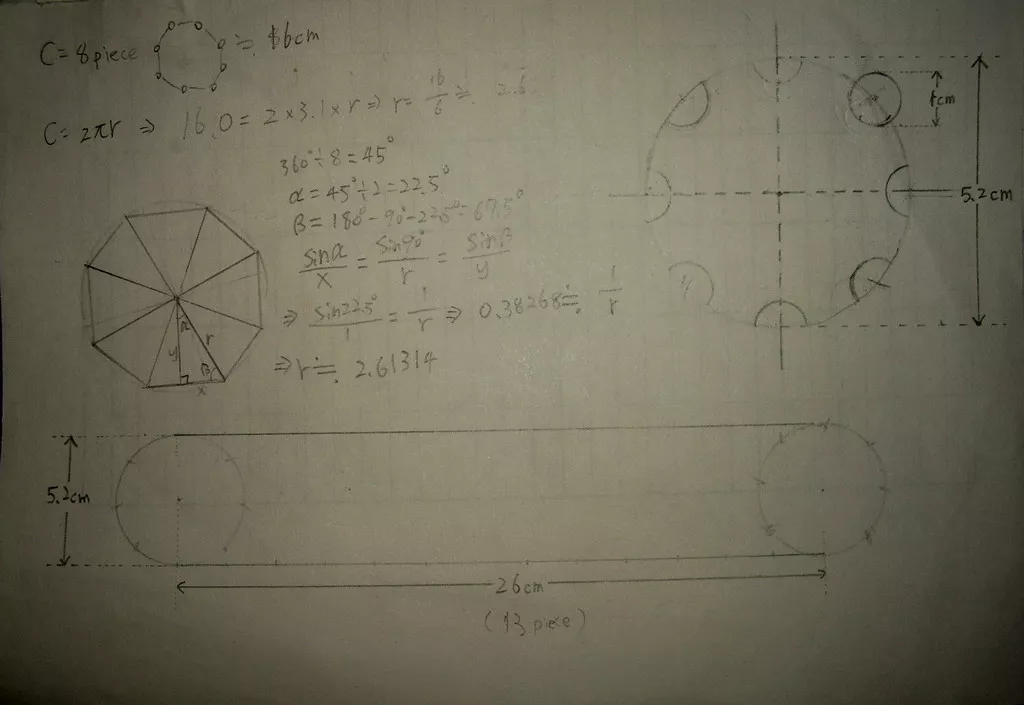 C = 8 piece ≒ 16cm
C = 2πr ⇒ 16.0 = 2×3.1×r ⇒ r = 16/6 ≒ 2.6
360°÷8 = 45°
α = 45°÷2 = 22.5°
β = 180°-90°-22.5° = 67.5°
sinα/x = sin90°/r = sinβ/y
⇒ sin22.5°/1 = 1/r ⇒ 0.38268 ≒ 1/r
⇒ r ≒ 2.61314
α
r
y
β
x
1cm
5.2cm
5.2cm
26cm
(13 piece)